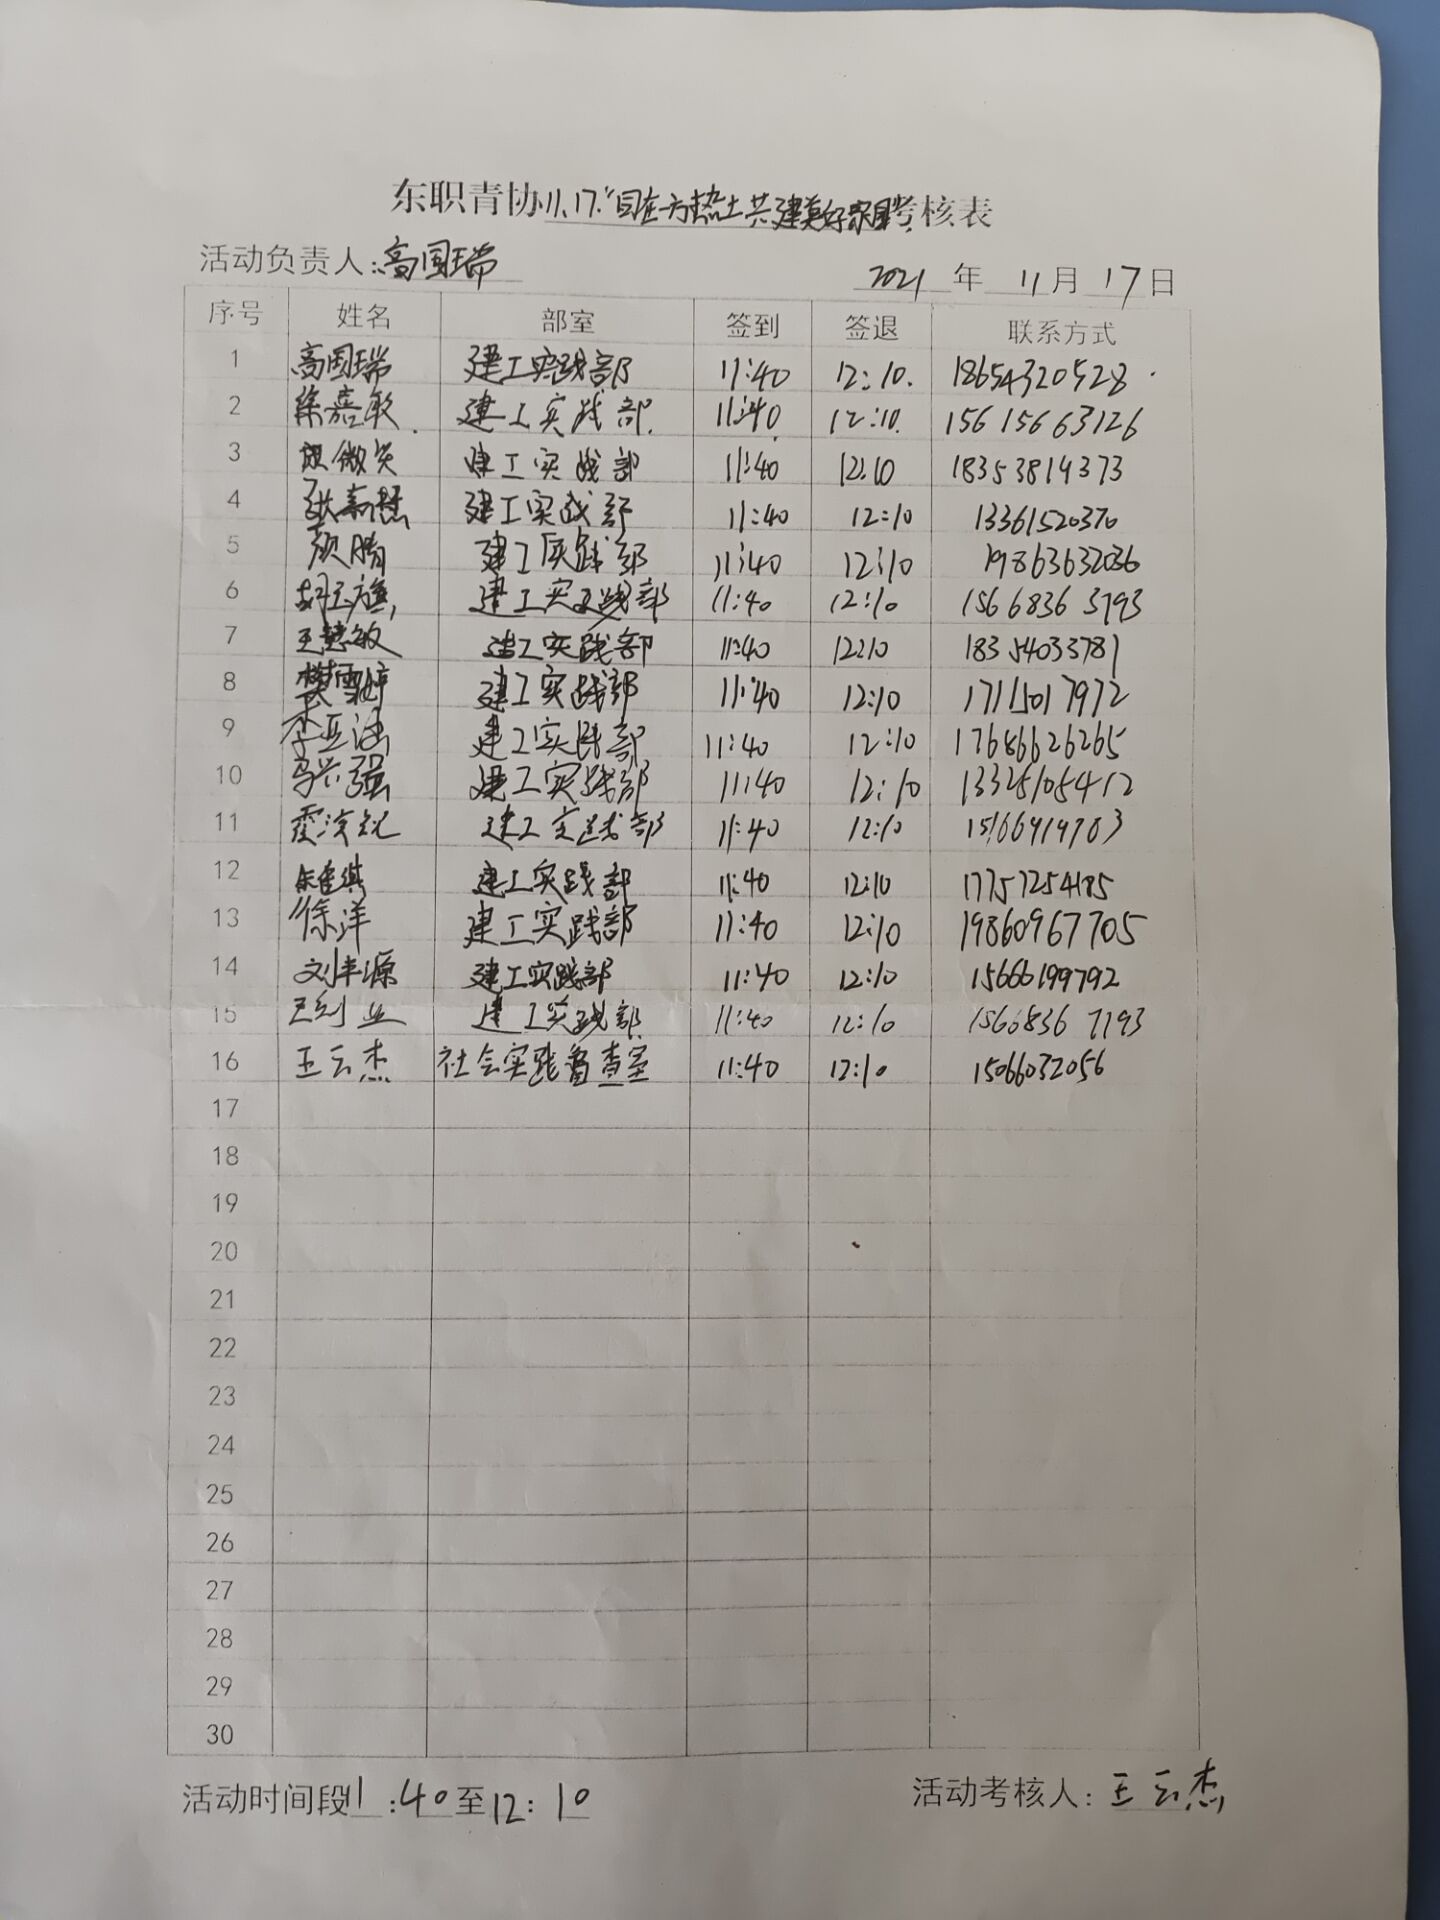 东职青协11.17."同在一方热土共建美好家园"考核表
活动负责人:高国瑞 2021年11月17日
序号 姓名 部室 签到 签退 联系方式
1 高国瑞 建工实践部 11:40 12:10. 18654320528
2 徐嘉敏 建工实践部. 11:40 12:10. 15615663126
3 微笑 建工实践部 11:40 12:10 18353819373
4 建工实践部 11:40 12:10 13361520370
5 颜腾 建工实践部 11:40 12:10 19863632036
6 建工实践部 11:40 12:10 15668363793
7 王慧敏 建工实践部 11:40 12:10 18354033781
8 樊雪婷 建工实践部 11:40 12:10 17115017972
9 李亚涵 建工实践部 11:40 12:10 17686626265
10 马兴强 建工实践部 11:40 12:10 13325105412
11 建工实践部 11:40 12:10 15166919703
12 建工实践部 11:40 12:10 17757254185
13 徐洋 建工实践部 11:40 12:10 19860967705
14 刘丰源 建工实践部 11:40 12:10 15666199792
15 建工实践部 11:40 12:10 15668367193
16 王云杰 社会实践督查室 11:40 12:10 15066032056
17
18
19
20
21
22
23
24
25
26
27
28
29
30
活动时间段11:40至12:10 活动考核人:王云杰